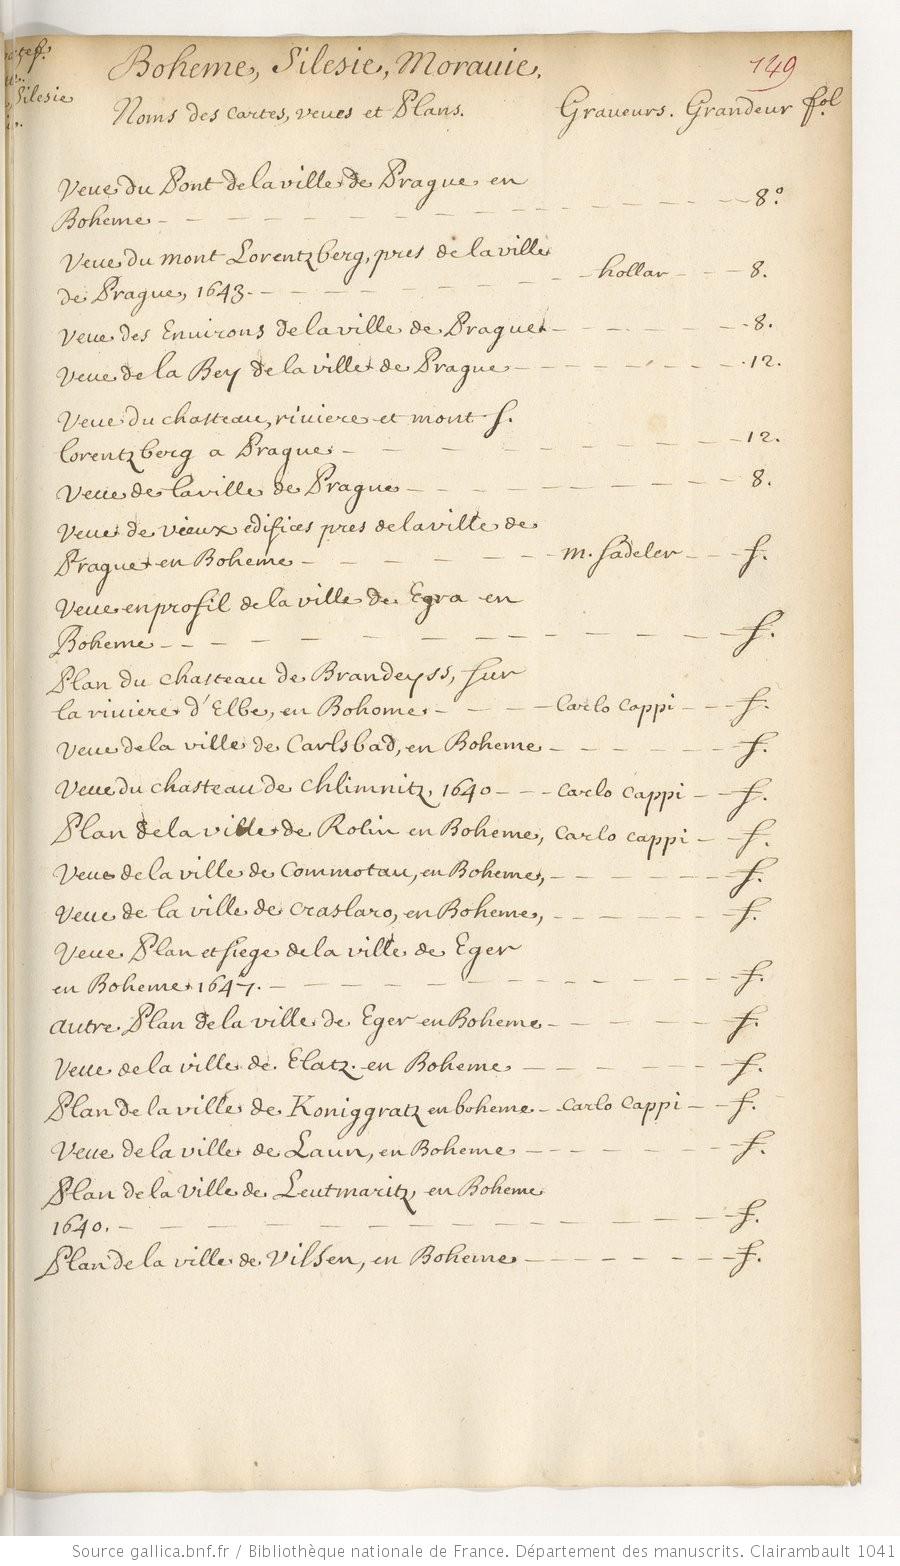 Boheme, Silesie, Morauie.
149
Silesie
Noms des cartes, veues et Plans. Graueurs. Grandeur fol.
Veue du Pont de la ville de Prague en
Boheme - 8.°
Veue du mont Lorentzberg, pres de la ville
de Prague, 1643. - hollar - 8.
Veue des Enuirons de la ville de Prague - 8.
Veue de la Bey de la ville de Prague - 12.
Veue du chasteau, riuiere et mont S.
lorentzberg a Prague - 12.
Veue de la ville de Prague - 8.
Veue de vieux edifices pres de la ville de
Prague en Boheme - m. sadeler - f.
Veue en profil de la ville de Egra en
Boheme - f.
Plan du chasteau de Brandeyss, sur
la riuiere d'Elbe, en Boheme - Carlo Cappi - f.
Veue de la ville de Carlsbad, en Boheme - f.
Veue du chasteau de Chlimnitz, 1640 - Carlo Cappi - f.
Plan de la ville de Kolin en Boheme, Carlo Cappi - f.
Veue de la ville de Commotau, en Boheme, - f.
Veue de la ville de Craslaro, en Boheme, - f.
Veue Plan et siege de la ville de Eger
en Boheme 1647. - f.
autre Plan de la ville de Eger en Boheme - f.
Veue de la ville de Elatz en Boheme - f.
Plan de la ville de Koniggratz en boheme - Carlo Cappi - f.
Veue de la ville de Laun, en Boheme - f.
Plan de la ville de Leutmaritz, en Boheme
1640. - f.
Plan de la ville de Vilsen, en Boheme - f.
Source gallica.bnf.fr / Bibliothèque nationale de France. Département des manuscrits. Clairambault 1041